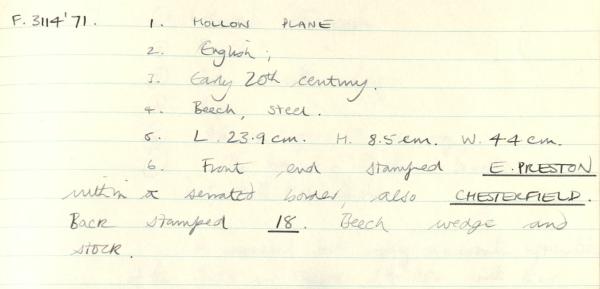 F. 3114'71. 1. HOLLOW PLANE
2. English;
3. Early 20th century.
4. Beech, steel.
5. L. 23.9 cm. H. 8.5 cm. W. 4.4 cm.
6. Front end stamped E. PRESTON
within a serrated border, also CHESTERFIELD.
Back stamped 18. Beech wedge and
stock.